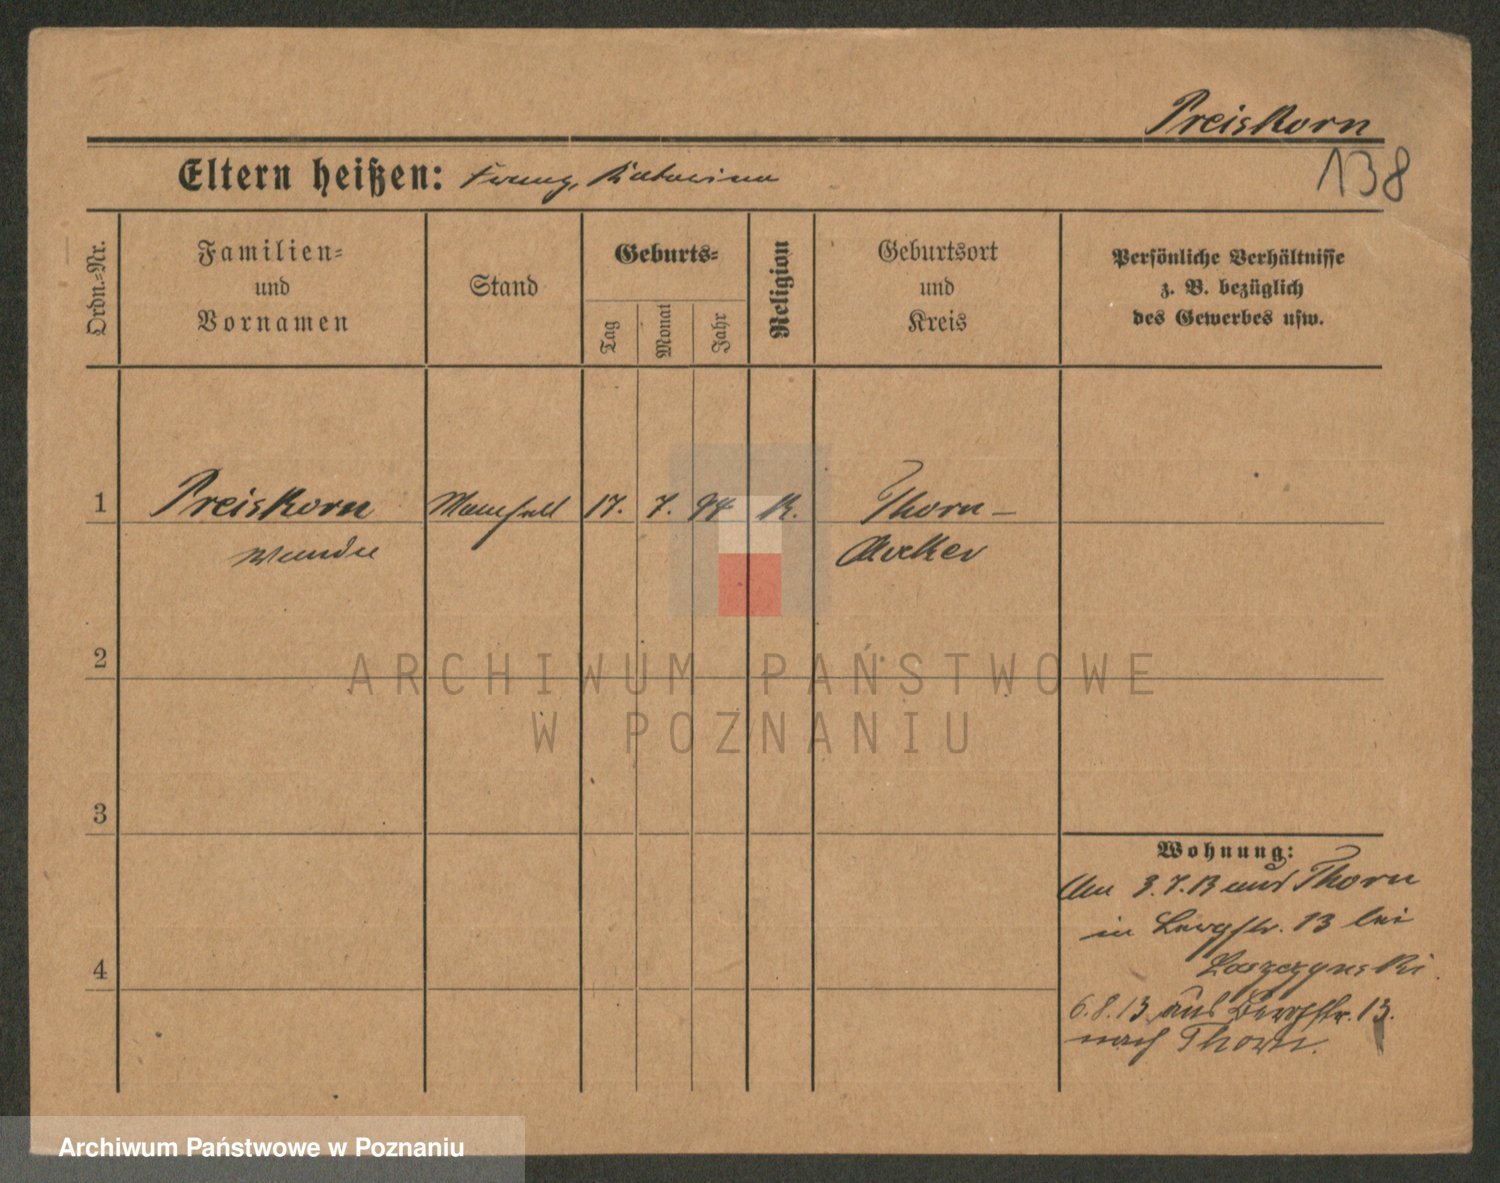 Preiskorn
138
Eltern heißen: Franz, Katarina
Ordn.=Nr.
Familien=
und
Vornamen
Stand
Geburts=
Tag
Monat
Jahr
Religion
Geburtsort
und
Kreis
Persönliche Verhältnisse
z. B. bezüglich
des Gewerbes usw.
1 Preiskorn Mamsell 17. 7. 94 K. Thorn –
Wanda Mocker
2
3
4
Wohnung:
Am 3.7.13 aus Thorn
in Bergstr. 13 bei
6.8.13 aus Bergstr. 13.
nach Thorn.
ARCHIWUM PAŃSTWOWE
W POZNANIU
Archiwum Państwowe w Poznaniu